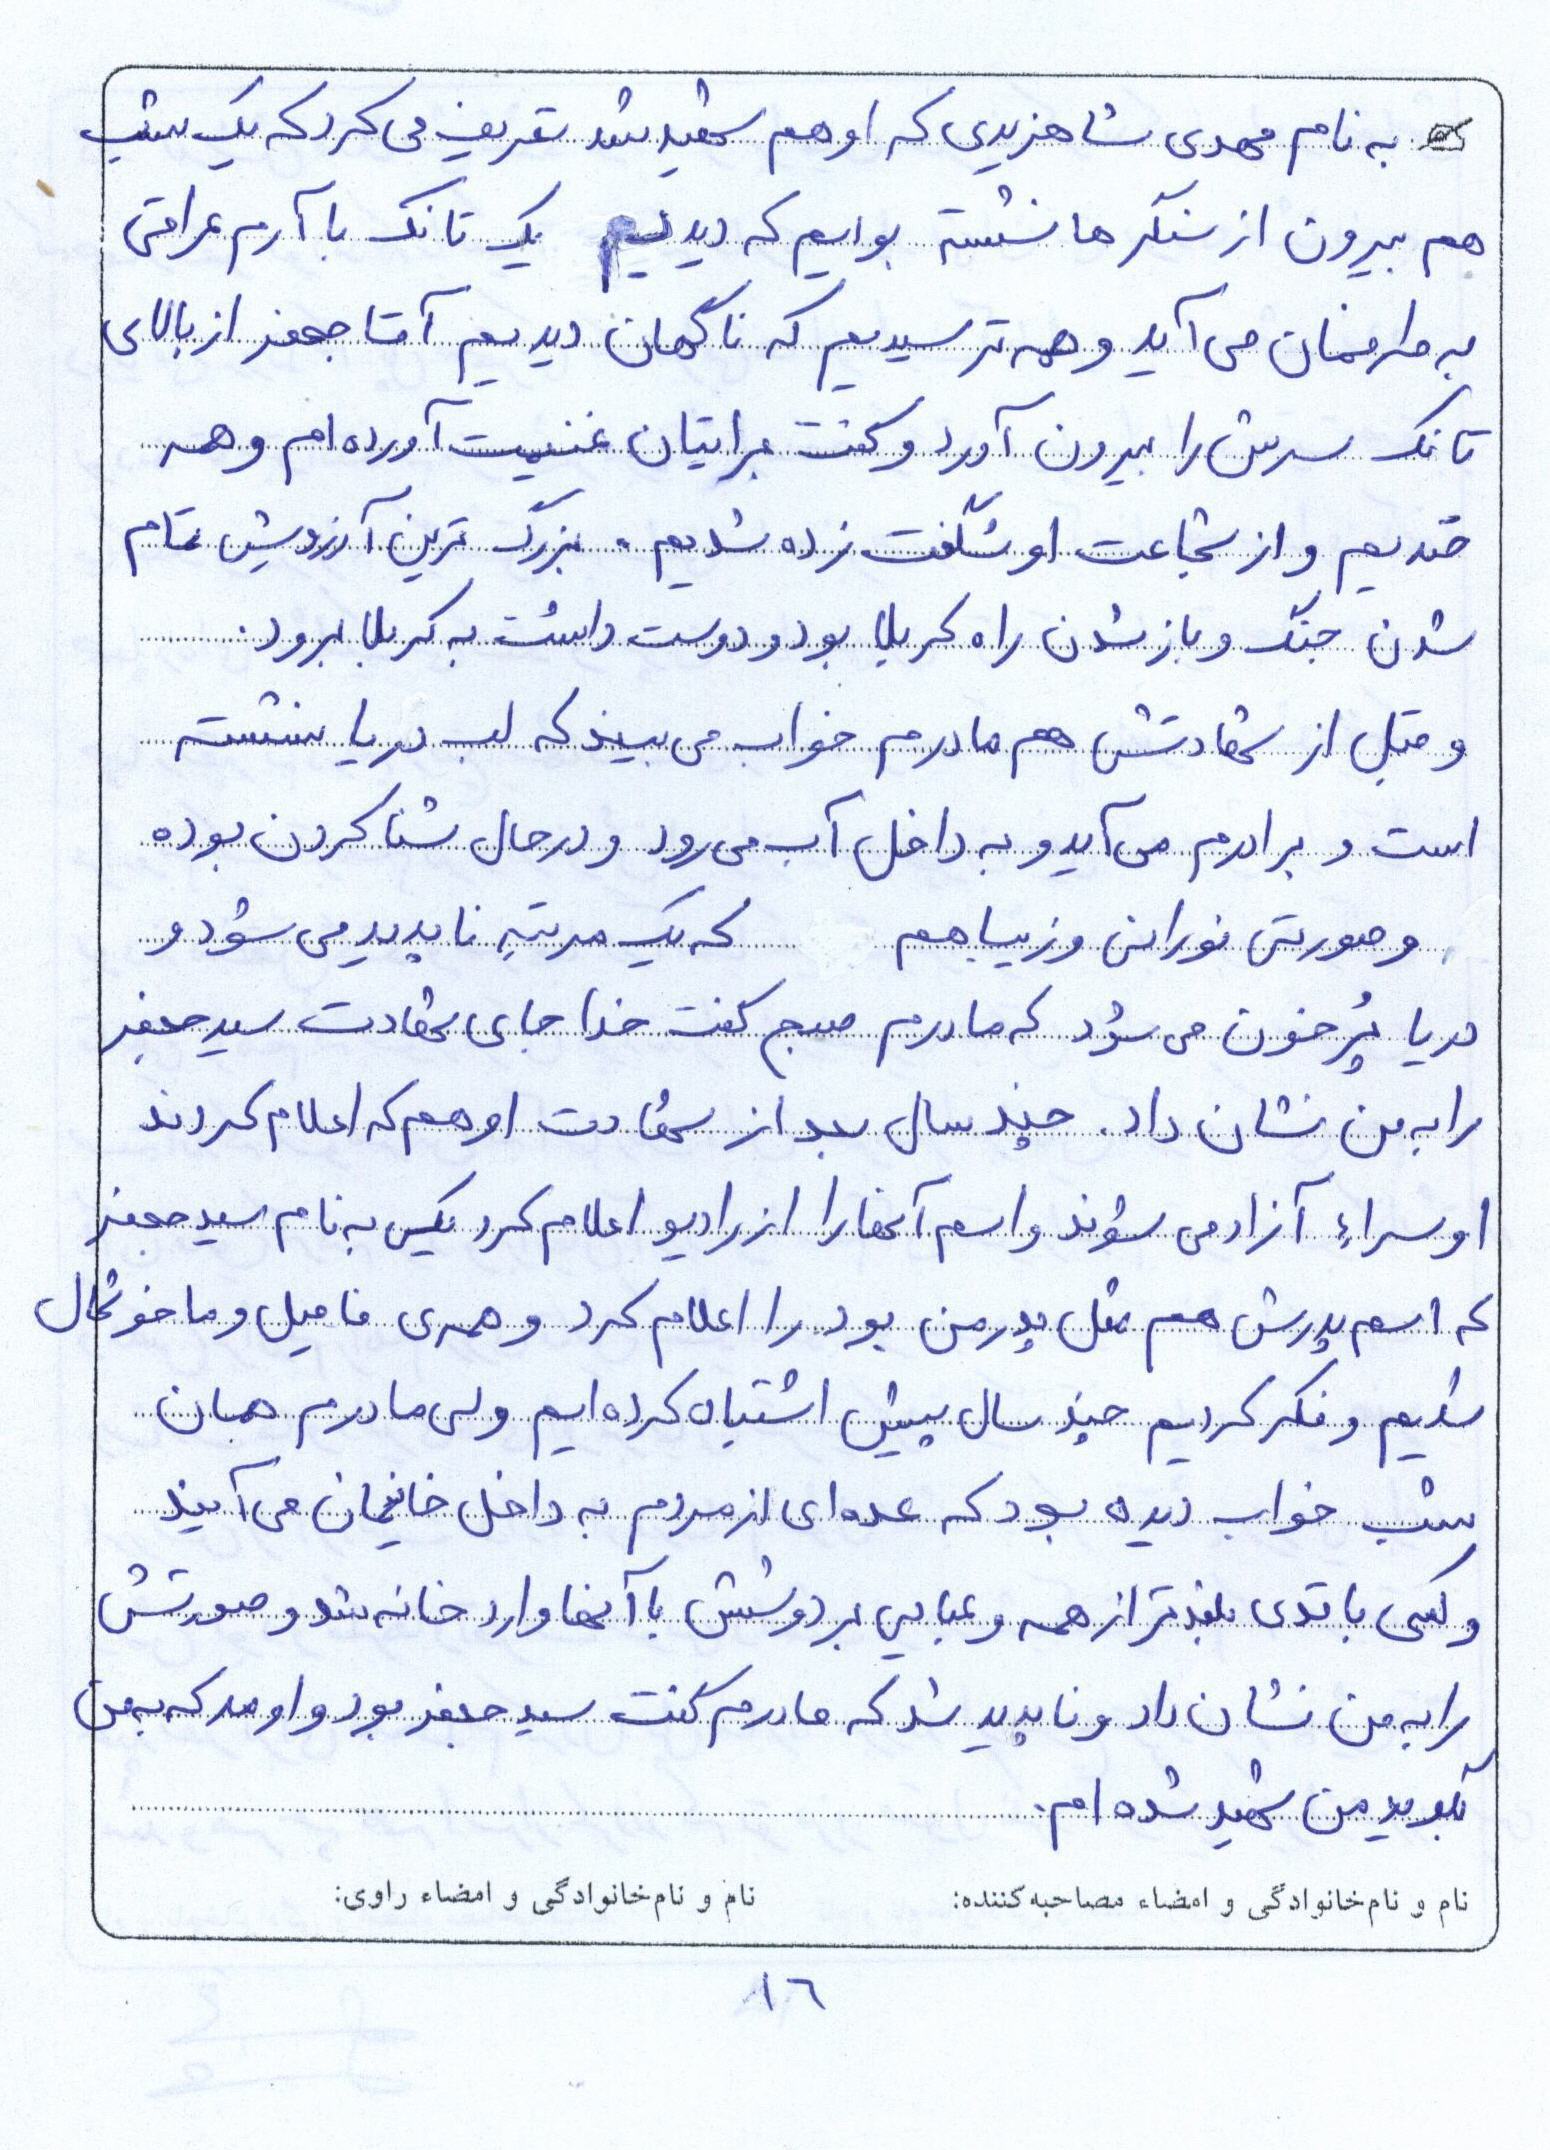 به نام مهدی شاهزیدی که او هم شهید شد تعریف می کرد که یک شب
هم بیرون از سنگرها نشسته بودیم که دیدیم یک تانک با آرم عراقی
به طرفمان می آید و همه ترسیدیم که ناگهان دیدیم آقا جعفر از بالای
تانک سرش را بیرون آورد و گفت برایتان غنیمت آورده ام و همه
خندیم و از شجاعت او شگفت زده شدیم. بزرگ ترین آرزویش تمام
شدن جنگ و باز شدن راه کربلا بود و دوست داشت به کربلا برود.
و قبل از شهادتش هم مادرم خواب می بیند که لب دریا نشسته
است و برادرم می آید و به داخل آب می رود و در حال شنا کردن بوده
و صورتش نورانی و زیبا هم که یک مرتبه ناپدید می شود و
دریا پُر خون می شود که مادرم صبح گفت خدا جای شهادت سید جعفر
را به من نشان داد. چند سال بعد از شهادت او هم که اعلام کردند
اوسراء آزاد می شوند و اسم آنها را از رادیو اعلام کرد یکی به نام سید جعفر
که اسم پدرش هم مثل پدر من بود را اعلام کرد و همه ی فامیل و ما خوشحال
شدیم و فکر کردیم چند سال پیش اشتباه کرده ایم ولی مادرم همان
شب خواب دیده بود که عده ای از مردم به داخل خانیمان می آیند
و کسی با قدی بلندتر از همه و عبایی بر دوشش با آنها وارد خانه شد و صورتش
را به من نشان داد و ناپدید شد که مادرم گفت سید جعفر بود و اومد که به من
بگوید من شهید شده ام.
نام و نام خانوادگی و امضاء مصاحبه کننده: نام و نام خانوادگی و امضاء راوی:
١٦